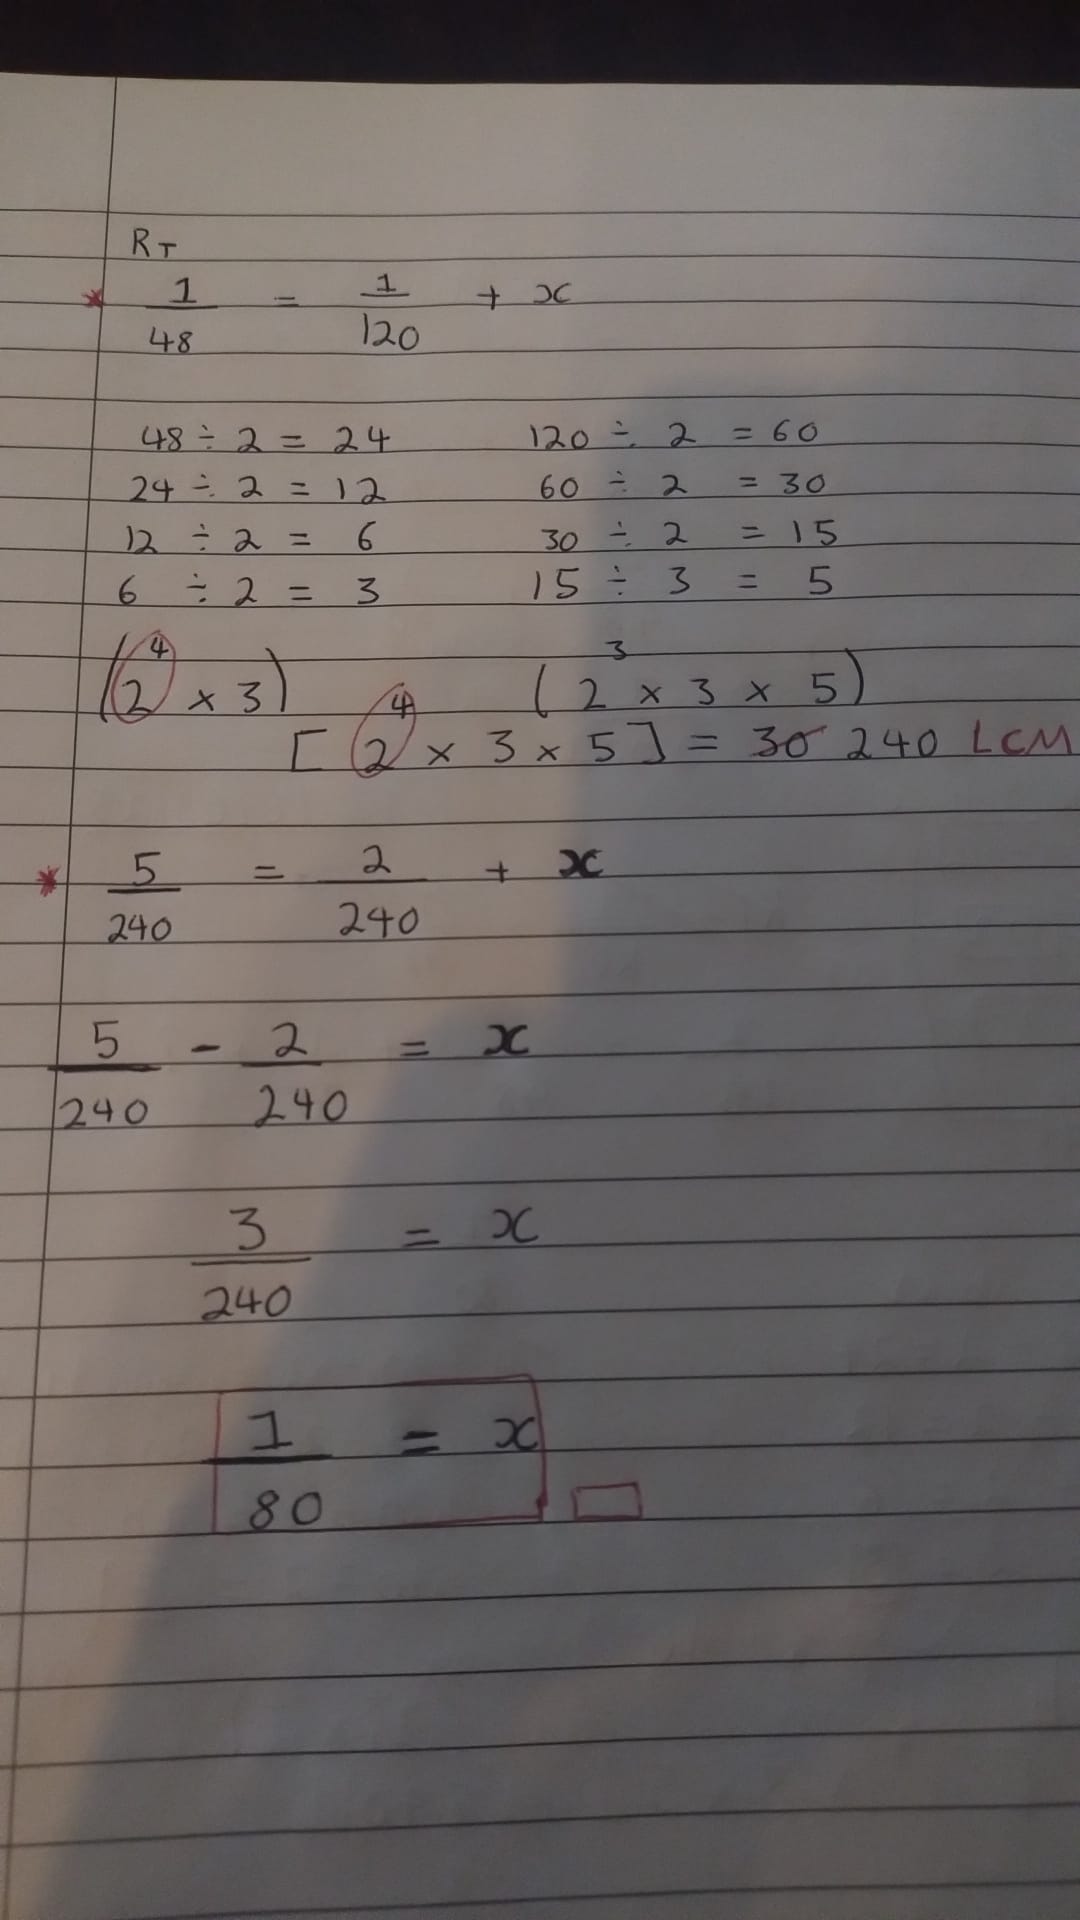 RT
* 1/48 = 1/120 + x
48 ÷ 2 = 24 120 ÷ 2 = 60
24 ÷ 2 = 12 60 ÷ 2 = 30
12 ÷ 2 = 6 30 ÷ 2 = 15
6 ÷ 2 = 3 15 ÷ 3 = 5
(2⁴ × 3) (2³ × 3 × 5)
[2⁴ × 3 × 5] = 30 240 LCM
* 5/240 = 2/240 + x
5/240 - 2/240 = x
3/240 = x
1/80 = x